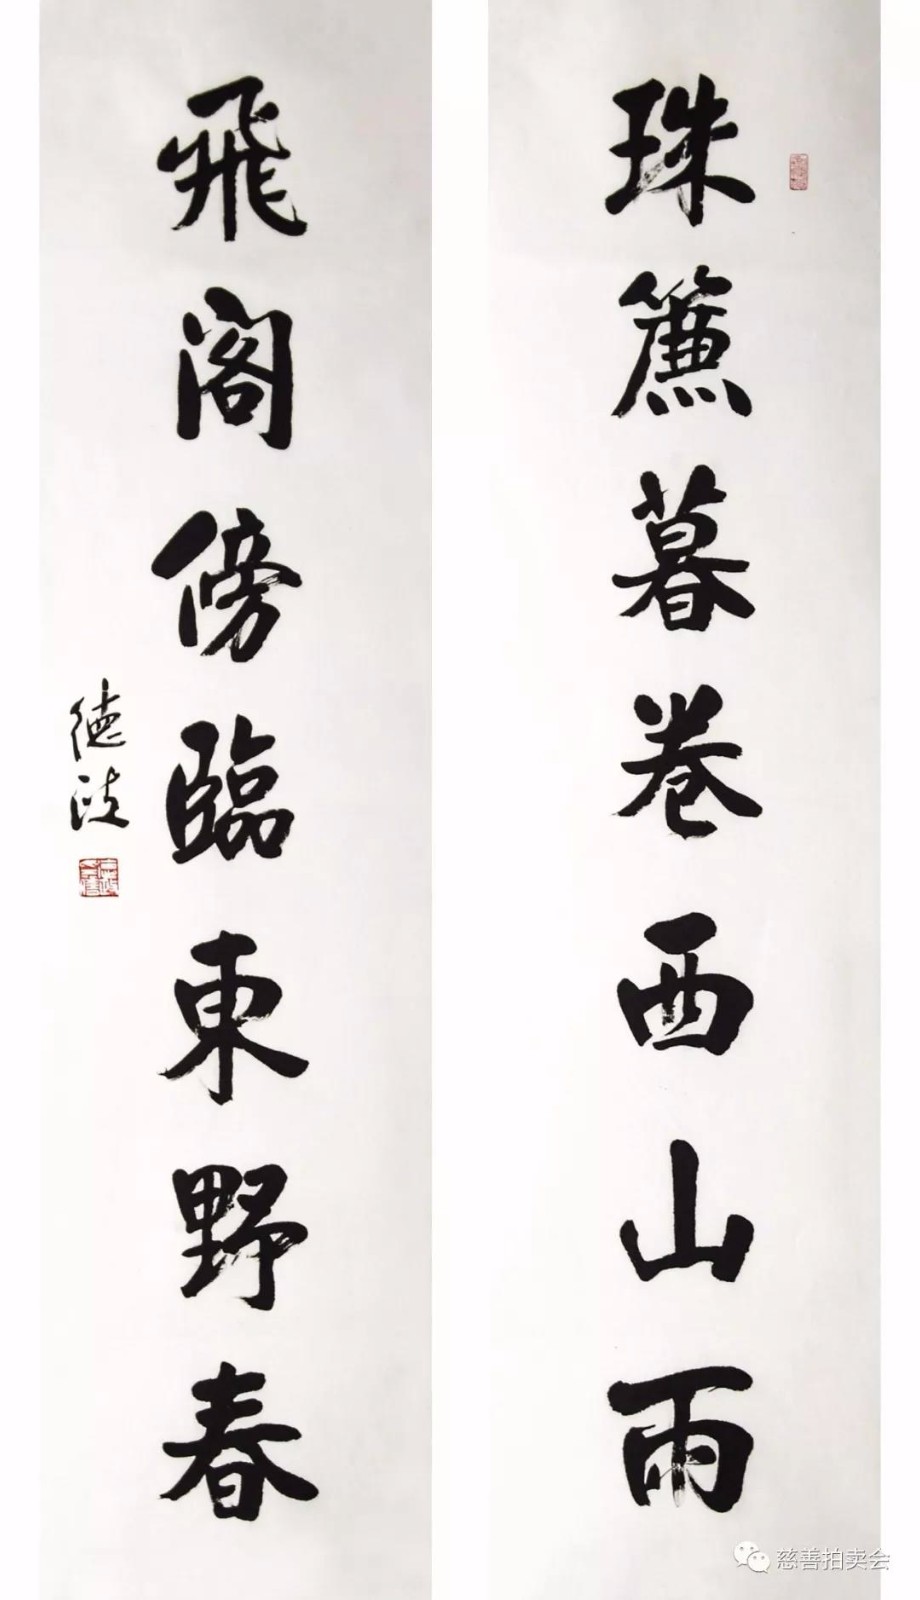 珠簾暮卷西山雨
飛閣傍臨東野春
德法
慈善拍卖会